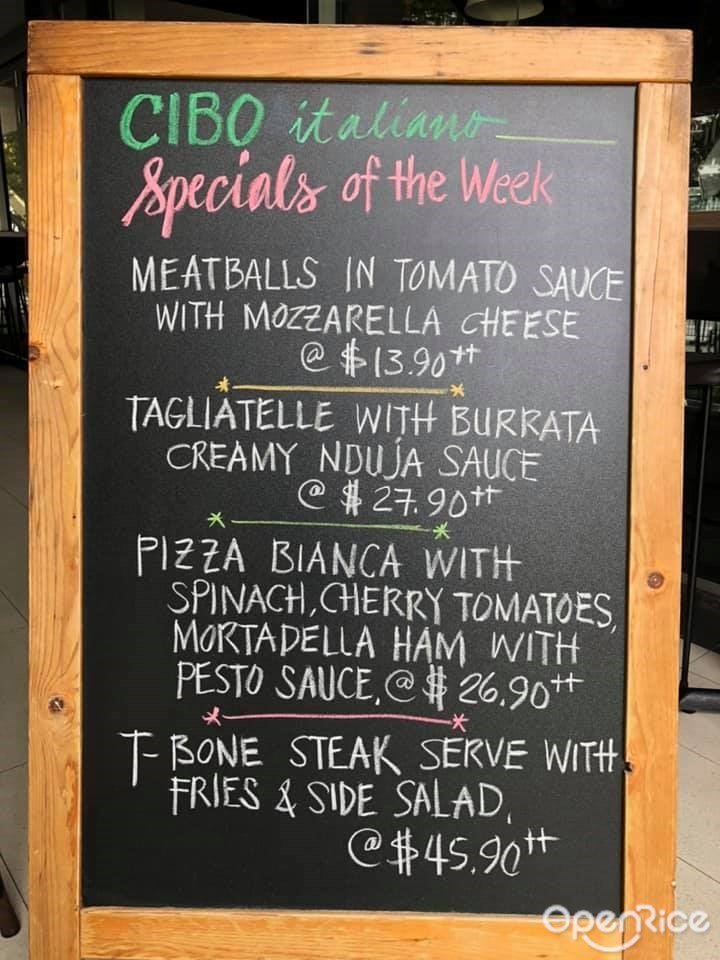 CIBO italiano
Specials of the Week
MEATBALLS IN TOMATO SAUCE
WITH MOZZARELLA CHEESE
@ $13.90++
TAGLIATELLE WITH BURRATA
CREAMY NDUJA SAUCE
@ $27.90++
PIZZA BIANCA WITH
SPINACH, CHERRY TOMATOES,
MORTADELLA HAM WITH
PESTO SAUCE, @ $26.90++
T-BONE STEAK SERVE WITH
FRIES & SIDE SALAD,
@ $45.90++
OpenRice